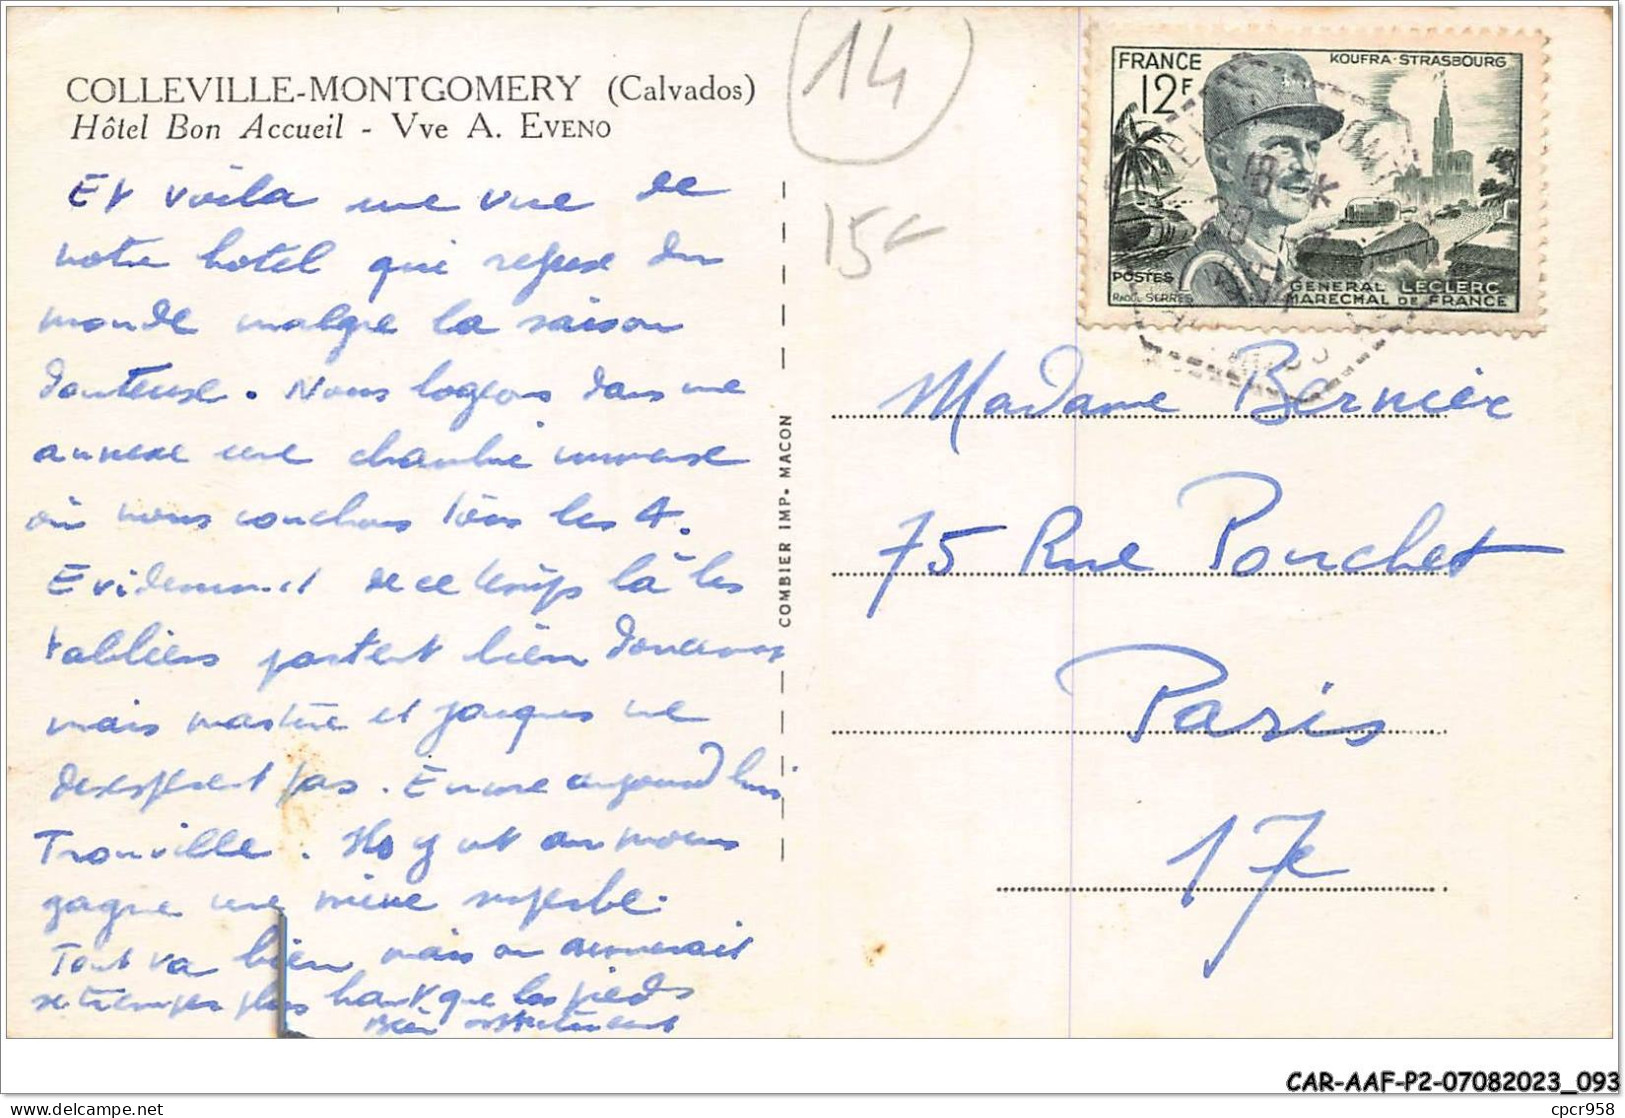 COLLEVILLE-MONTGOMERY (Calvados)
Hôtel Bon Accueil - Vve A. EVENO
14
15€
Et voila une vue de
notre hotel qui refuse du
monde malgre la saison
douteuse. Nous logeons dans une
annexe une chambre immense
où nous couchons tous les 4.
Evidemment de ce temps là les
tabliers portent bien
mais et Jacques ne
desesperent pas. Encore aujourd'hui
Trouville. Ils y ont au moins
gagne une mine superbe.
Tout va bien mais on aimerait
se tremper plus haut que les pieds
Bien
COMBIER IMP. MACON
FRANCE
12F
KOUFRA-STRASBOURG
POSTES
RAOUL SERRES
GENERAL LECLERC
MARECHAL DE FRANCE
Madame Bernier
75 Rue Pouchet
Paris
17e
CAR-AAF-P2-07082023_093
delcampe.net
cpcr958